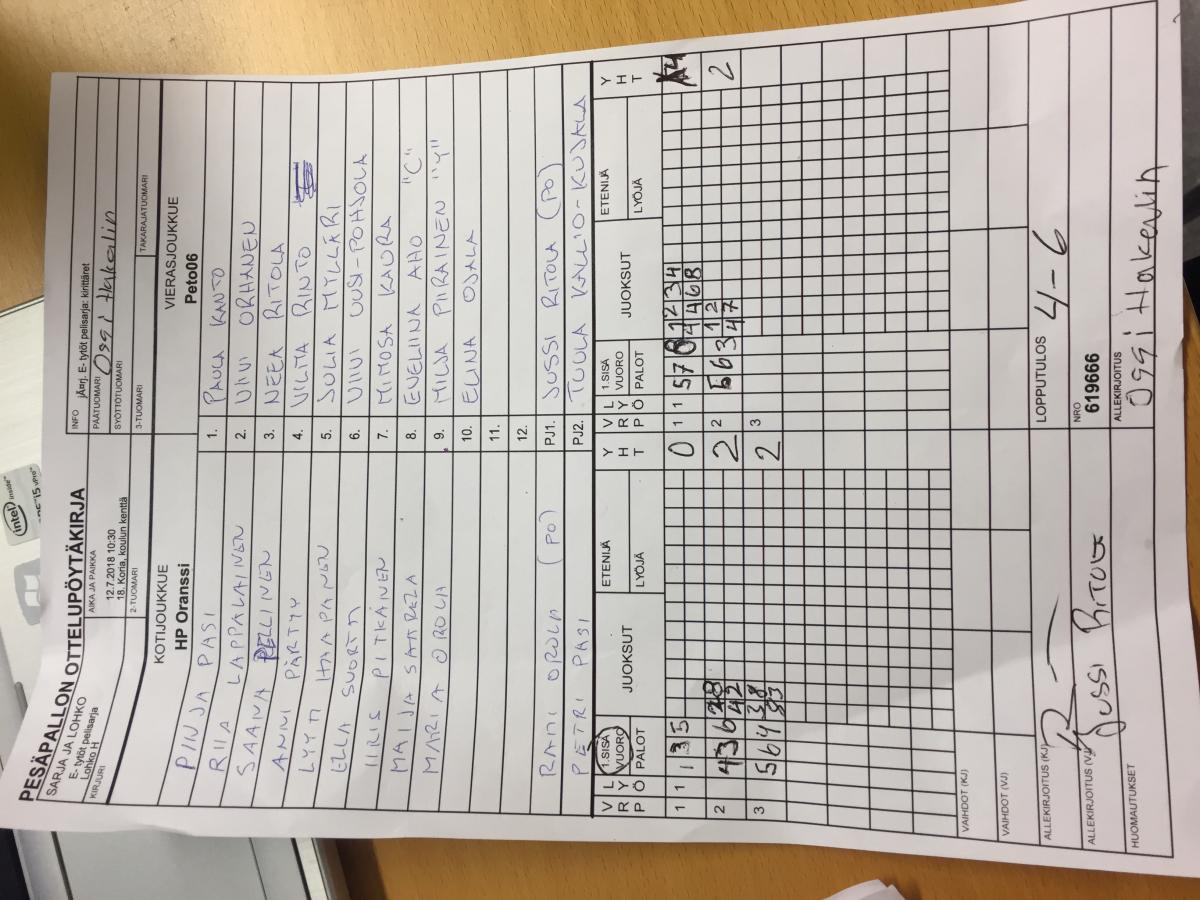 PESÄPALLON OTTELUPÖYTÄKIRJA
SARJA JA LOHKO
E- tytöt pelisarja
Lohko H
AIKA JA PAIKKA
12.7.2018 10:30
18. Koria, koulun kenttä
INFO jÄnrj. E- tytöt pelisarja: kirittäret
PÄÄTUOMARI Ossi Hakalin
SYÖTTÖTUOMARI
KIRJURI
2-TUOMARI
3-TUOMARI
TAKARAJATUOMARI
KOTIJOUKKUE
HP Oranssi
VIERASJOUKKUE
Peto06
PINJA PASI 1. PAULA KANTO
RIIA LAPPALAINEN 2. VIVI ORHANEN
SAANA PELLINEN 3. NEEA RITOLA
ANNI PÄRTYY 4. VILMA RINTO
LYYTI HAAPANEN 5. JULIA MYLLÄRI
ELLA SUORTTI 6. VIIVI UUSI-POHJOLA
IIRIS PITKÄNEN 7. MIMOSA KAURA
MAIJA SAARELA 8. EVELIINA AHO "C"
MARIA OROLA 9. MILJA PIIRAINEN "Y"
10. ELINA OJALA
11.
12.
RAMI OROLA (PO) PJ1. JUSSI RITOLA (PO)
PETRI PASI PJ2. TUULA KALLIO-KUJALA
V R L Y P Ö 1.SISÄ VUORO PALOT JUOKSUT ETENIJÄ LYÖJÄ Y H T V R L Y P Ö 1.SISÄ VUORO PALOT JUOKSUT ETENIJÄ LYÖJÄ Y H T
1 1 1 3 5 0 1 1 5 7 0 1 2 3 4 4
4 4 6 8
2 4 3 6 2 8 2 2 5 6 3 1 2 2
4 2 4 7
3 5 6 4 3 8 2 3
9 3
VAIHDOT (KJ)
VAIHDOT (VJ)
ALLEKIRJOITUS (KJ)
LOPPUTULOS 4-6
ALLEKIRJOITUS (VJ) Jussi Ritola
NRO
619666
HUOMAUTUKSET
ALLEKIRJOITUS
Ossi Hakalin
intel inside
CORE i5 vPro